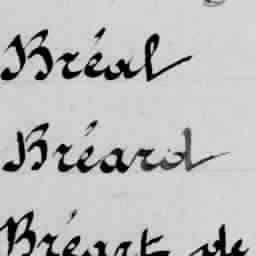 Bréal
Bréard
Bréart de